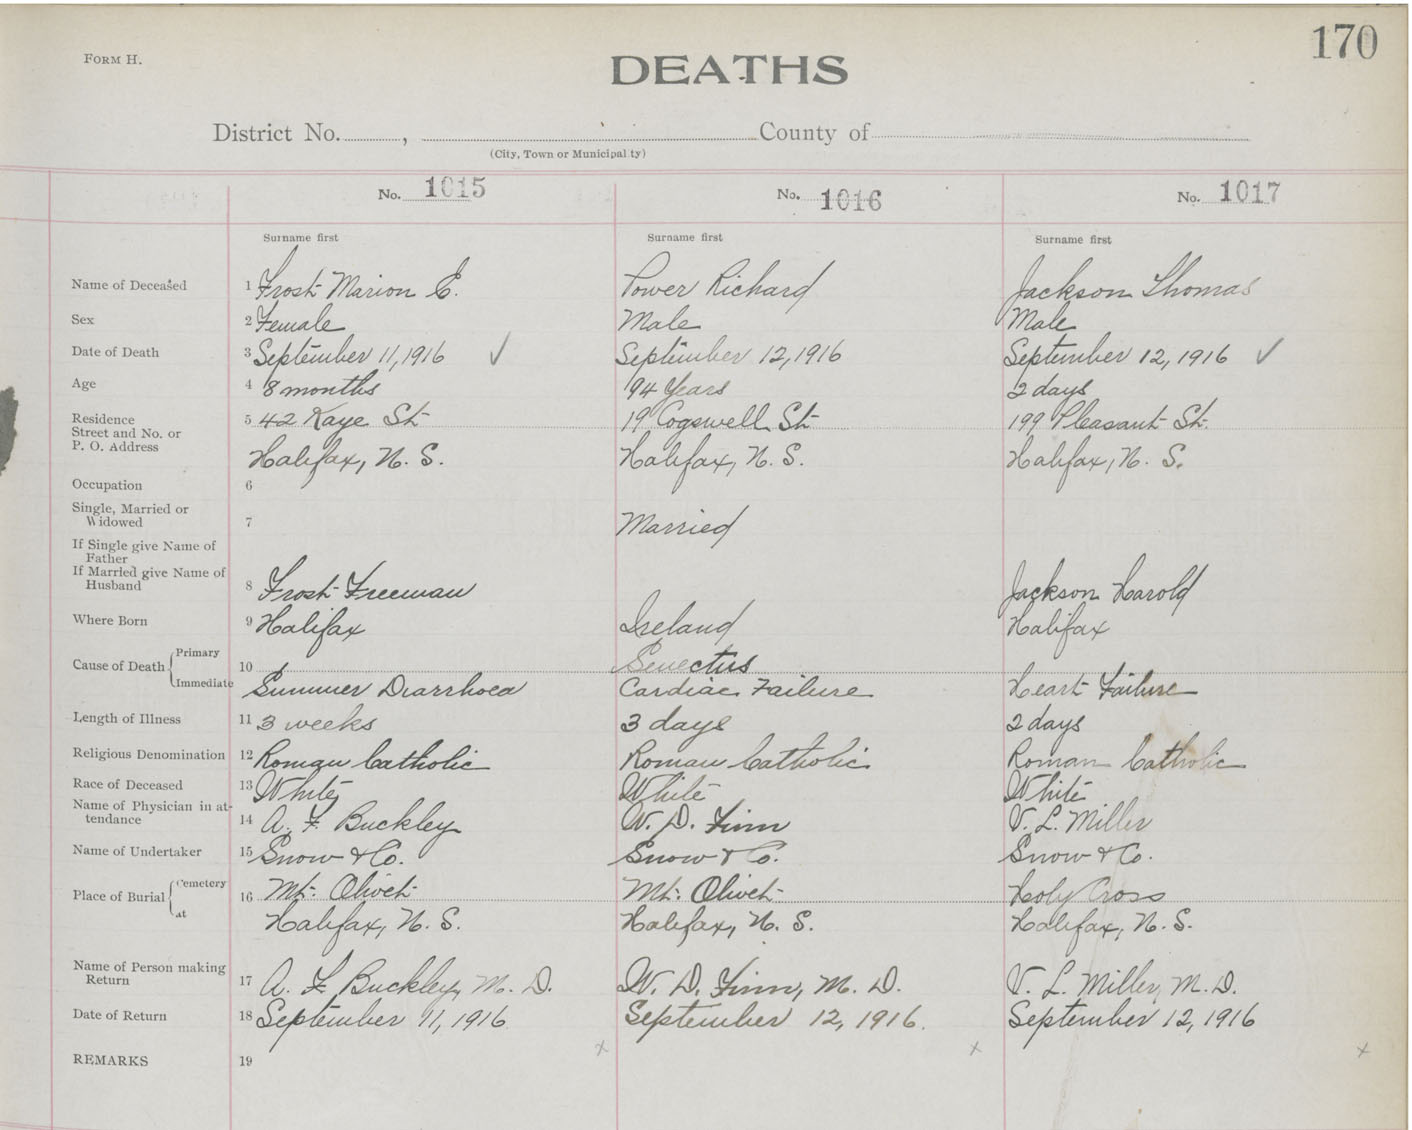 170
FORM H.
DEATHS
District No. , County of
(City, Town or Municipality)
No. 1015 No. 1016 No. 1017
Surname first Surname first Surname first
Name of Deceased 1 Frost Marion E. Power Richard Jackson Thomas
Sex 2 Female Male Male
Date of Death 3 September 11, 1916 ✓ September 12, 1916 September 12, 1916 ✓
Age 4 8 months 94 Years 2 days
Residence
Street and No. or 5 42 Kaye St 19 Cogswell St 199 Pleasant St.
P. O. Address Halifax, N. S. Halifax, N. S. Halifax, N. S.
Occupation 6
Single, Married or
Widowed 7 Married
If Single give Name of
Father
If Married give Name of
Husband 8 Frost Freeman Jackson Harold
Where Born 9 Halifax Ireland Halifax
Cause of Death Primary 10 Senectus
Immediate Summer Diarrhoea Cardiac Failure Heart Failure
Length of Illness 11 3 weeks 3 days 2 days
Religious Denomination 12 Roman Catholic Roman Catholic Roman Catholic
Race of Deceased 13 White White White
Name of Physician in at-
tendance 14 A. F. Buckley W. D. Finn V. L. Miller
Name of Undertaker 15 Snow & Co. Snow & Co. Snow & Co.
Place of Burial Cemetery 16 Mt. Olivet Mt. Olivet Holy Cross
at Halifax, N. S. Halifax, N. S. Halifax, N. S.
Name of Person making
Return 17 A. F. Buckley, M. D. W. D. Finn, M. D. V. L. Miller, M. D.
Date of Return 18 September 11, 1916 September 12, 1916. September 12, 1916
x x x
REMARKS 19